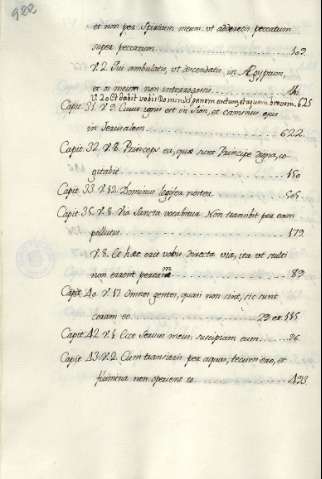 982
et non per Spiritum meum ut adderetis peccatum
super peccatum............102
V.2. Qui ambulatis, ut descendatis in Ægyptum,
et os meum non interrogastis.....46
V. 20 Et dabit vobis Dominus panem arctum, et aquam brevem. 625
Capit. 31. V.9. Cuius ignis est in Sion, et caminus ejus
in Jerusalem............622
Capit. 32. V.8. Princeps ea, quæ sunt Principe digna, co
gitabit............150
Capit. 33. V.22. Dominus legifer noster.......505
Capit. 35. V.8. Via Sancta vocabitur. Non transibit per eam
pollutus............179
V.8. Et hæc erit vobis directa via, ita ut stulti
non errent per eam............83
Capit. 40. V.17. Omnes gentes, quasi non sint, sic sunt
coram eo............23 et 185
Capit. 42. V.1. Ecce Servus meus, suscipiam eum....36
Capit. 43. V.2. Cum transieris per aquas, tecum ero, et
flumina non operient te............423